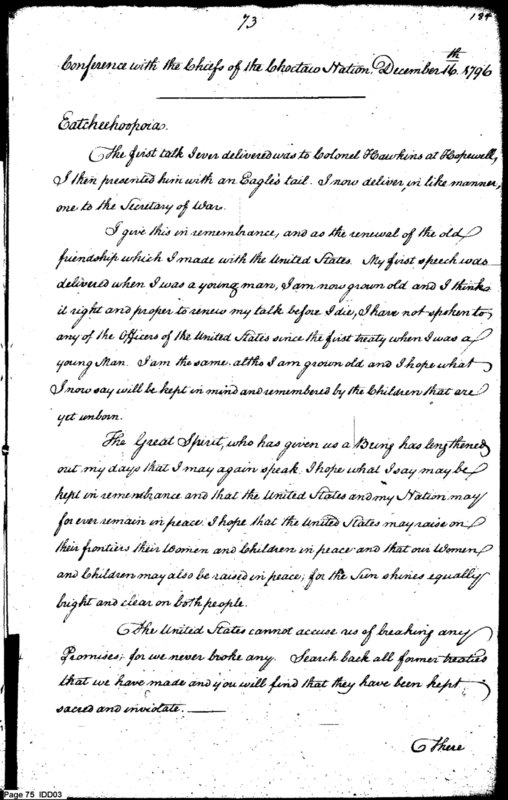 73
184
Conference with the Chiefs of the Choctaw Nation, December 16th 1796
Eatcheehoopoia.
The first talk I ever delivered was to Colonel Hawkins at Hopewell,
I then presented him with an Eagle's tail. I now deliver, in like manner,
one to the Secretary of War.
I give this in remembrance, and as the renewal of the old
friendship which I made with the United States. My first speech was
delivered when I was a young man, I am now grown old and I think
it right and proper to renew my talk before I die, I have not spoken to
any of the Officers of the United States since the first treaty when I was a
young Man. I am the same altho I am grown old and I hope what
I now say will be kept in mind and remembered by the Children that are
yet unborn.
The Great Spirit, who has given us a Being has lengthened
out my days that I may again speak. I hope what I say may be
kept in remembrance and that the United States and my Nation may
for ever remain in peace. I hope that the United States may raise on
their frontiers their Women and Children in peace and that our Women
and Children may also be raised in peace; for the Sun shines equally
bright and clear on both people.
The United States cannot accuse us of breaking any
Promises; for we never broke any. Search back all former treaties
that we have made and you will find that they have been kept
sacred and inviolate.
There
Page 75 IDD03